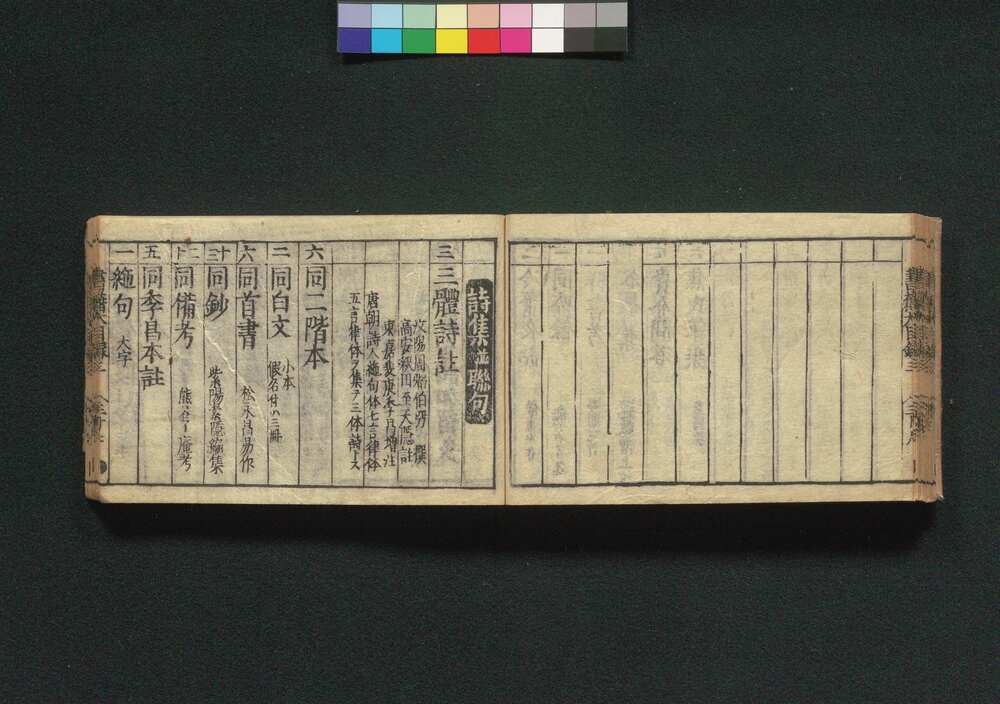 詩集並聯句
三 三體詩註
汶陽周弼伯弜撰
高安釈円至天隠註
東嘉裴庾季昌増注
唐朝ノ詩人絶句体七言律体
五言律体ヲ集テ三体詩トス
六 同二階本
二 同白文 小本 假名付ハ三冊
六 同首書 松永昌易作
十三 同鈔 紫陽素隠編集
十二 同備考 熊谷立庵考
五 同季昌本註
一 絶句 大字